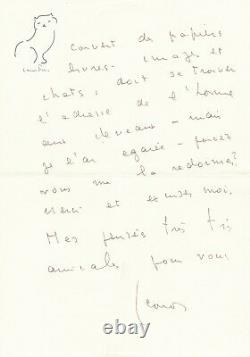 couvert de papiers
livres - images et
chats, doit se trouver
l'adresse de l'homme
aux cheveaux - mais
je l'ai égarée - pouvez
vous me la redonner?
Merci et excusez moi.
Mes pensées très très
amicales pour vous
Leonor